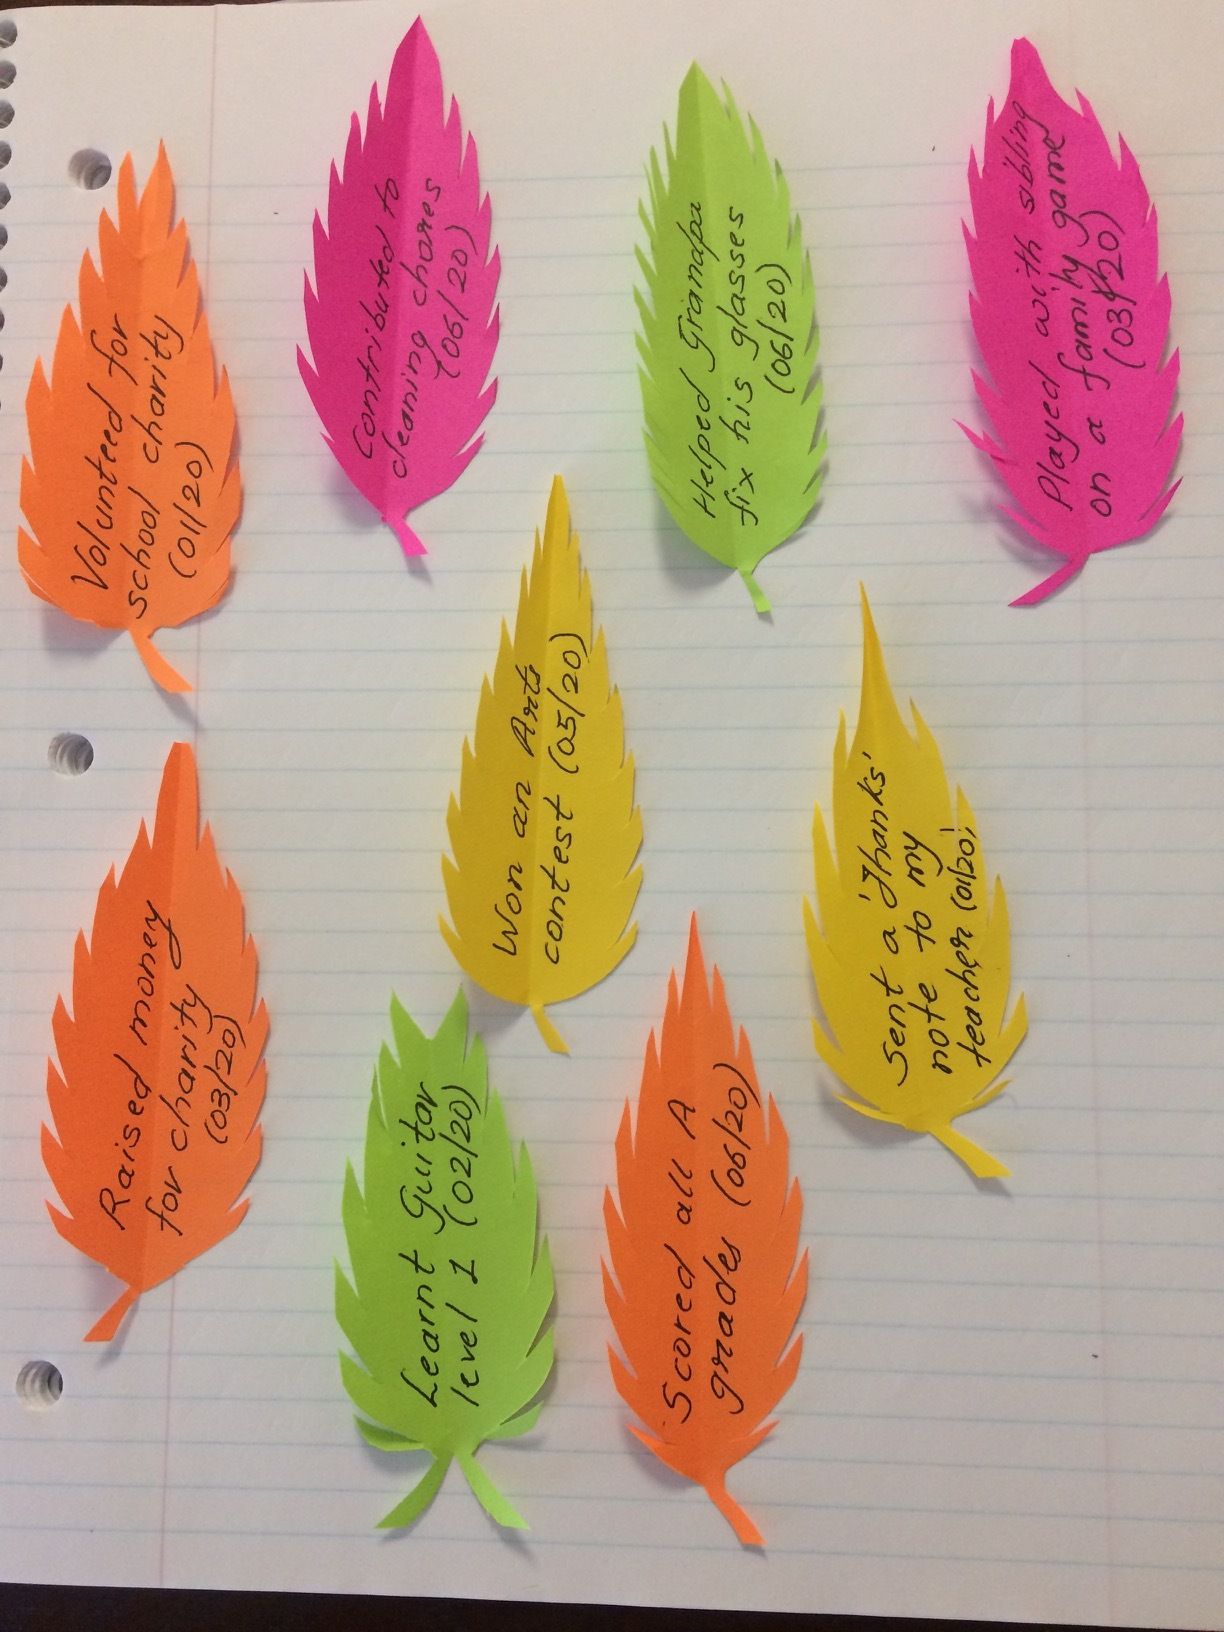 Volunteed for
school charity
(01/20)
Contributed to
cleaning chores
(06/20)
Helped Grandpa
fix his glasses
(06/20)
Played with sibling
on a family game
(03/20)
Won an Arts
contest (05/20)
Sent a 'Thanks'
note to my
teacher (01/20)
Raised money
for charity
(03/20)
Learnt Guitar
level 1 (02/20)
Scored all A
grades (06/20)